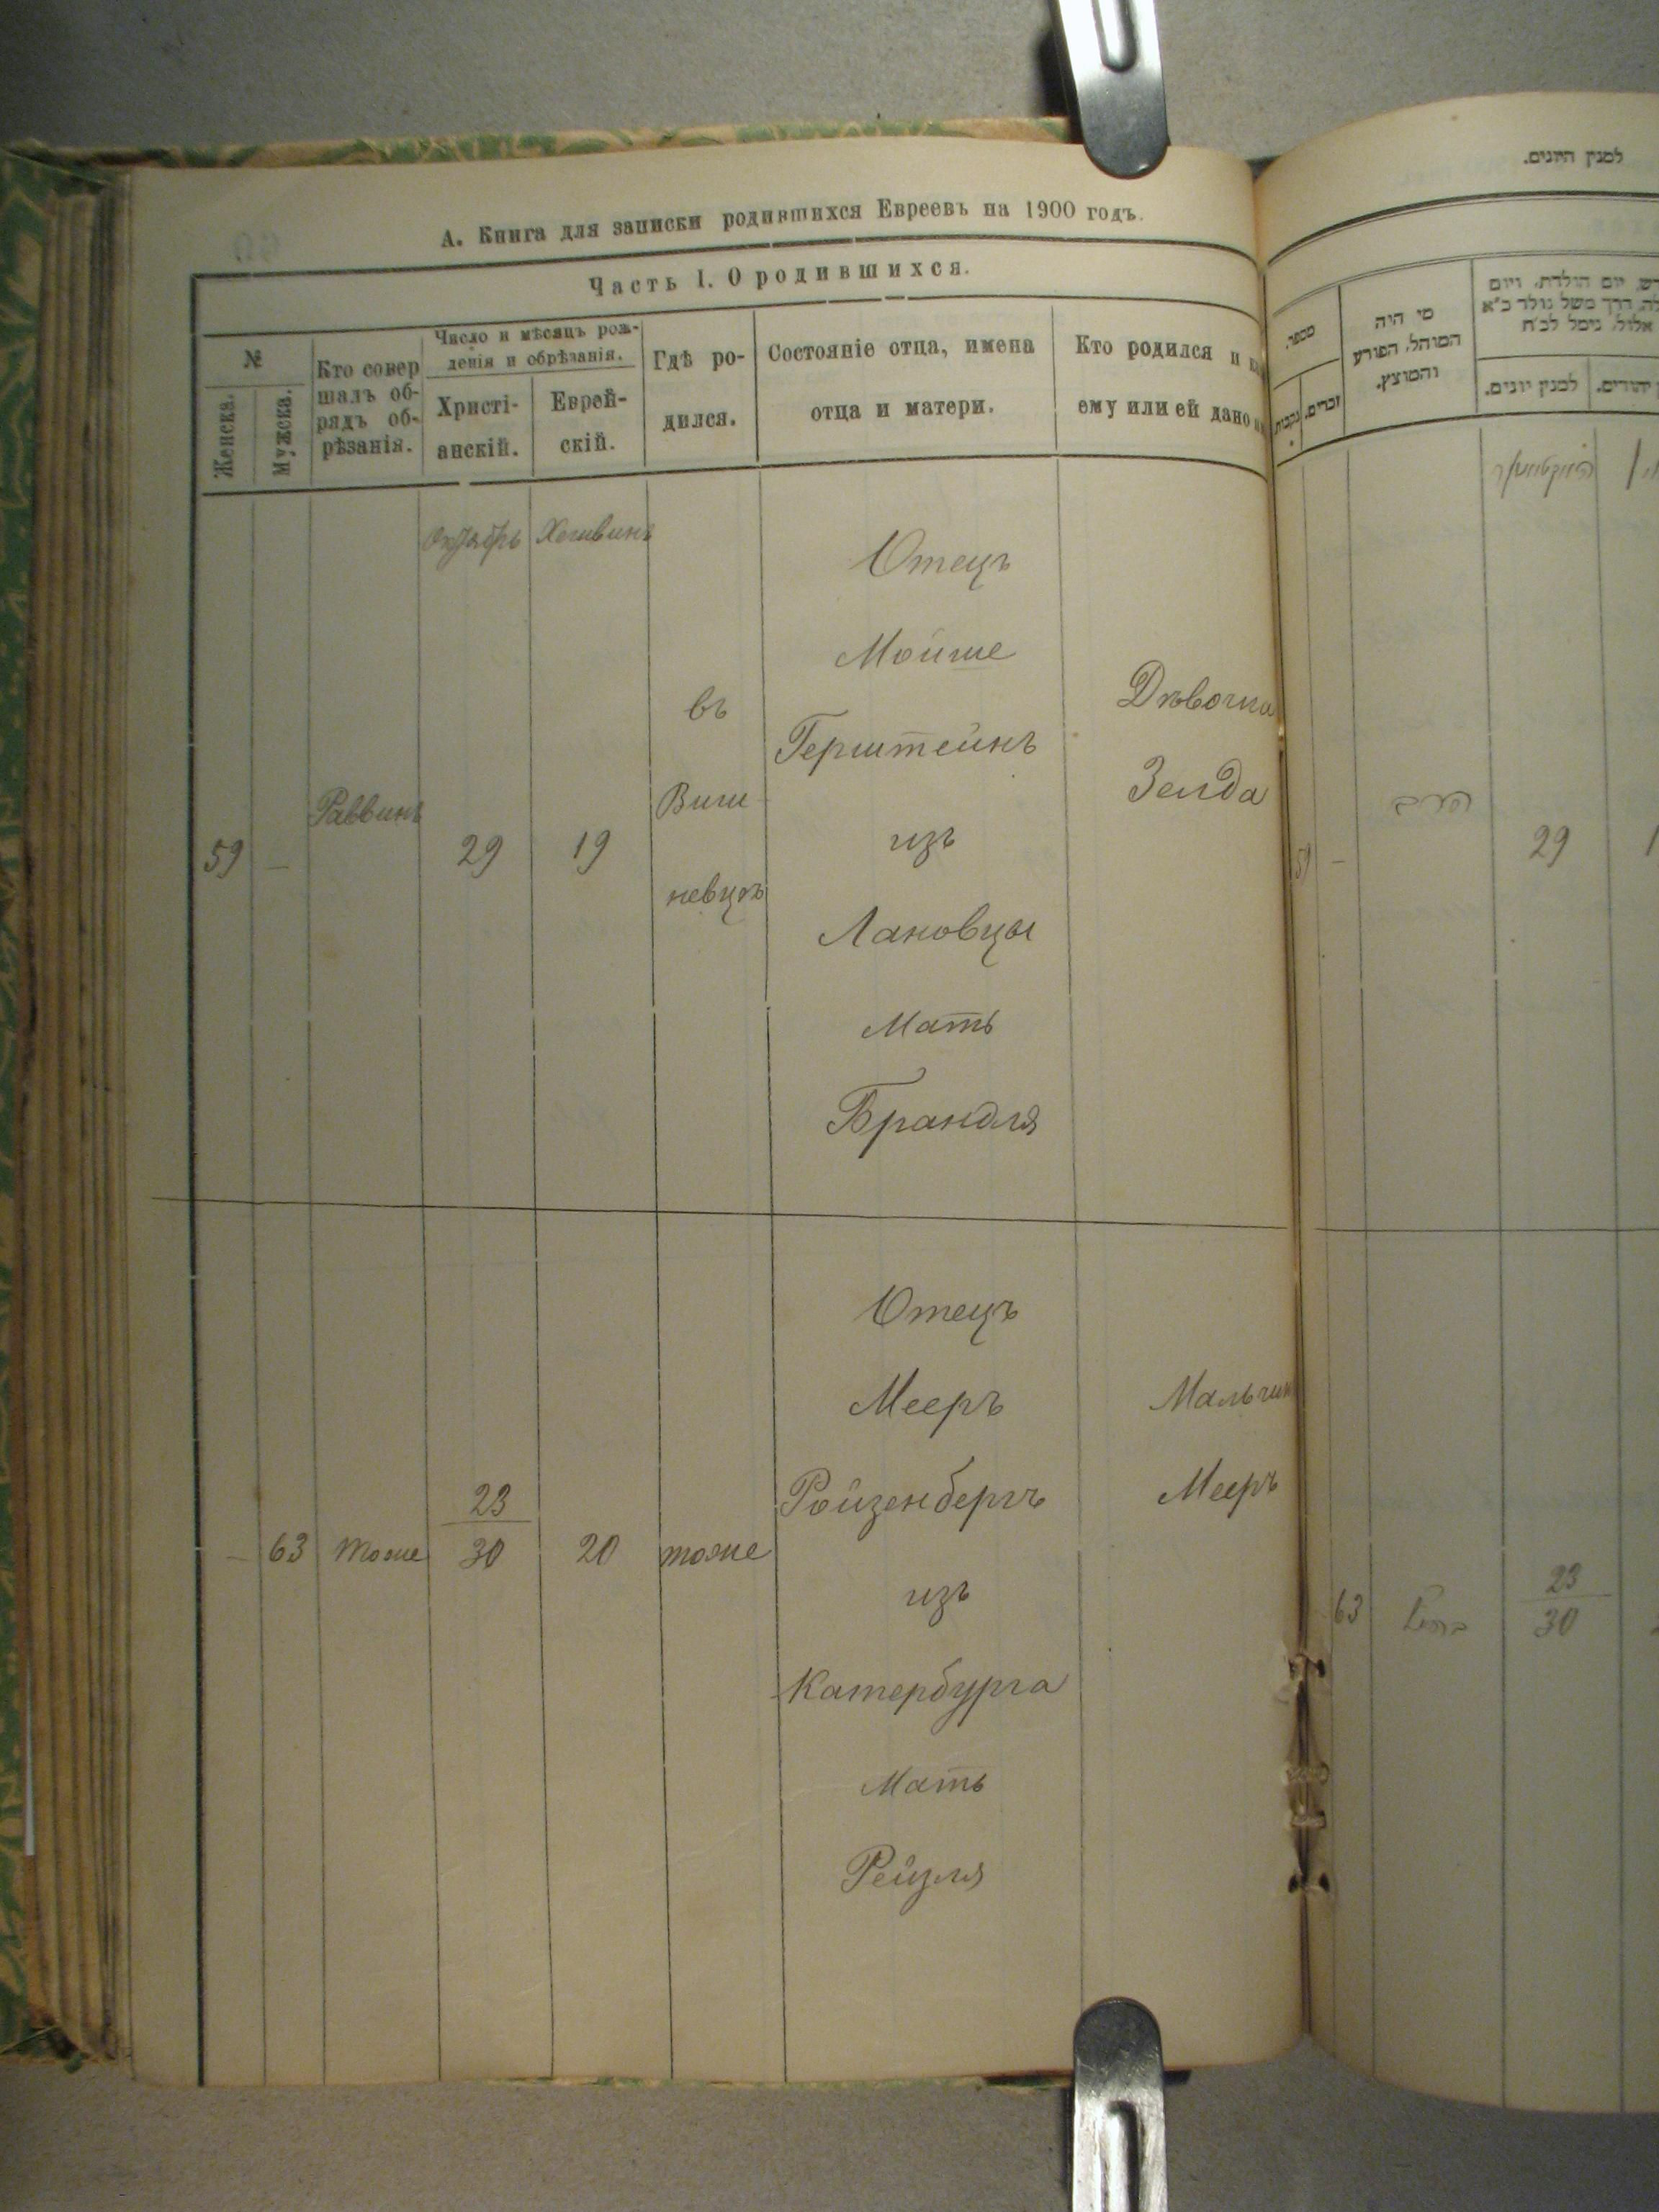 А. Книга для записки родившихся Евреевъ на 1900 годъ.
Часть I. О родившихся.
№
Женска.
Мужска.
Кто совер
шалъ об-
рядъ об-
рѣзанія.
Число и мѣсяцъ рож-
денія и обрѣзанія.
Христі-
анскій.
Еврей-
скій.
Гдѣ ро-
дился.
Состояніе отца, имена
отца и матери.
Кто родился и
ему или ей дано
Октябрь
59
—
Раввинъ
29
19
въ
Више
невцѣ
Отецъ
Мойше
Герштейнъ
изъ
Лановцы
Мать
Брандля
Дѣвочка
Зелда
—
63
тоже
23
30
20
тоже
Отецъ
Мееръ
Ройзенбергъ
изъ
Катербурга
Мать
Рейзля
Мальчик
Мееръ
למנין היונים.
מספר.
נקבות
זכרים.
מי היה
המוהל, הפורע
והמוצץ.
יום הולדת, ויום
דרך משל נולד כ״א
אלול, נימל לכ״ח
למנין יונים.
יהודים.
59
—
הרב
29
63
23
30